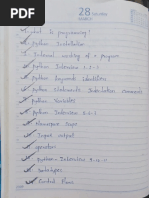 28 SATURDAY
MARCH
what is programming?
Python Installation
Internal working of a program
Python Interview 1.2.1
Python Keywords Identifiers
Python Statements Indentation comments
Python Variables
Python Interview
Namespace Scope
Input output
operators
Python Interview
Datatypes
Control Flow